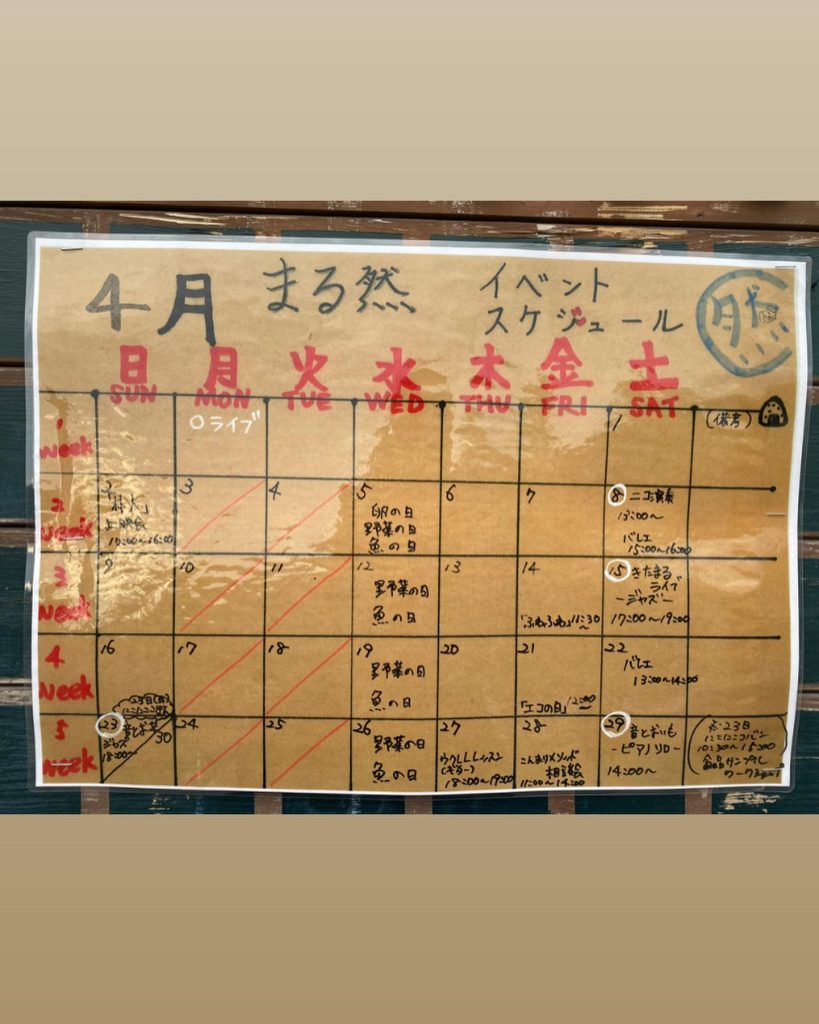 4月 まる然 イベント
スケジュール
然
日 月 火 水 木 金 土
SUN MON TUE WED THU FRI SAT
○ライブ
1
week
1
(備考)
2
week
2
上映会
10:00〜16:00
3
4
5
卵の日
野菜の日
魚の日
6
7
8
ニコ演奏
13:00〜
バレエ
15:00〜16:00
3
week
9
10
11
12
野菜の日
魚の日
13
14
「ふわふわ」11:30
〜
15 きたまる
ライブ
-ジャズ-
17:00〜19:00
4
week
16
17
18
19
野菜の日
魚の日
20
21
「エコの日」12:00
〜
22
バレエ
13:00〜14:00
5
week
23
ジャズ
18:00〜
30
24
25
26
野菜の日
魚の日
27
ウクレレレッスン
18:00〜19:00
28
こんまりメソッド
相談会
11:00〜14:00
29
音とおいも
-ピアノソロ-
14:00〜
※23日
にこにこコパン
10:30〜15:00
食品サンプル
ワークショップ